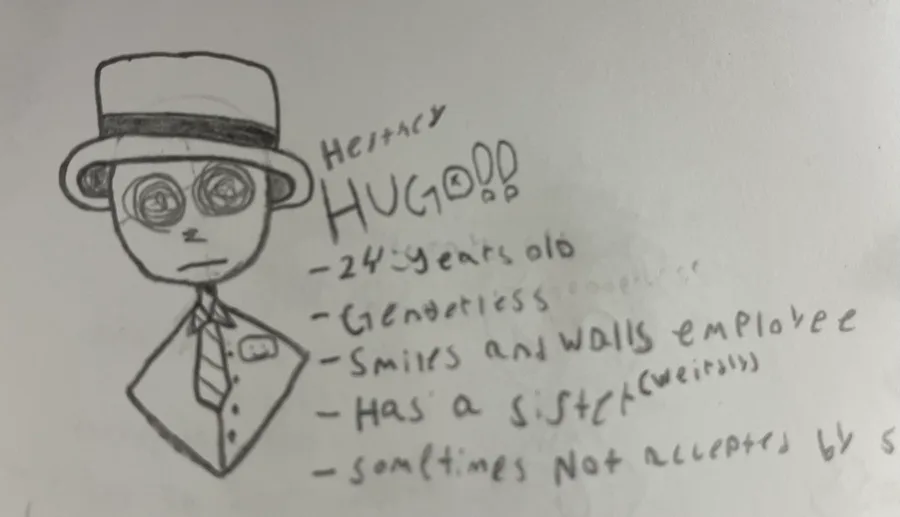 HUGO!!
-24-years old
-Genderless
-Smiles and walls employee
-Has a sister (weirdly)
-sometimes Not accepted by s